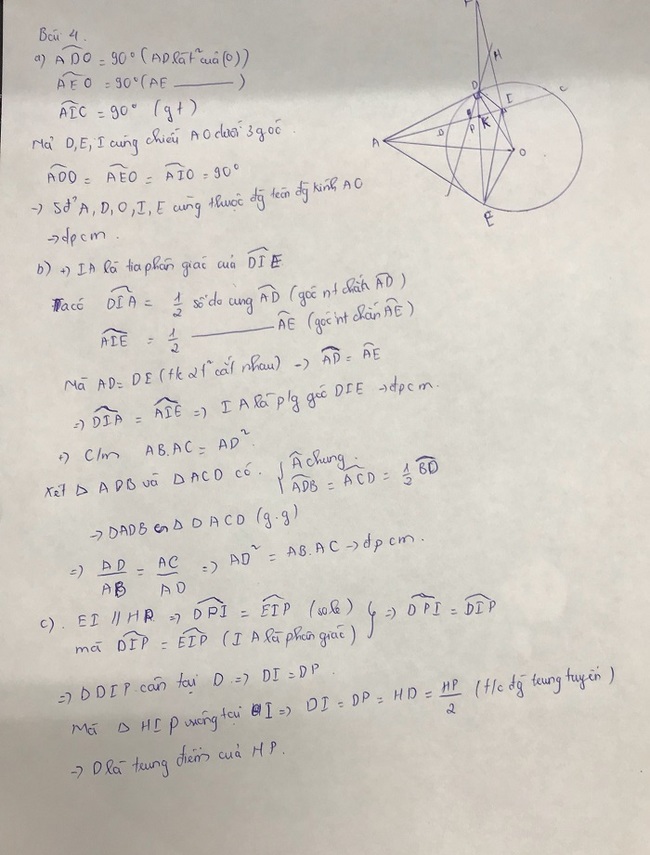 Bài 4.
a) ADO = 90° (AD là t² của (O))
AEO = 90° (AE ———)
AIC = 90° (gt)
Mà D, E, I cùng chiếu AO dưới 3 góc
ADO = AEO = AIO = 90°
→ 5đ' A, D, O, I, E cùng thuộc đg tròn đg kính AO
→ đpcm.
b) +) IA là tia phân giác của DIE
Ta có DIA = 1/2 số đo cung AD (góc nt chắn AD)
AIE = 1/2 ——— AE (góc nt chắn AE)
Mà AD = DE (t/c 2 t² cắt nhau) → AD = AE
⇒ DIA = AIE ⇒ IA là p/g góc DIE → đpcm.
+) C/m AB.AC = AD².
Xét Δ ADB và Δ ACD có. { Â chung.
ADB = ACD = 1/2 BD
→ ΔADB ∽ Δ ACD (g.g)
⇒ AD/AB = AC/AD ⇒ AD² = AB.AC → đpcm.
c). EI // HP ⇒ DPI = EIP (sole) } ⇒ DPI = DIP
mà DIP = EIP (IA là phân giác)
⇒ Δ DIP cân tại D ⇒ DI = DP.
Mà Δ HIP vuông tại I ⇒ DI = DP = HD = HP/2 (t/c đg trung tuyến)
→ D là trung điểm của HP.
H
D
E
C
A
B
P
K
O
E